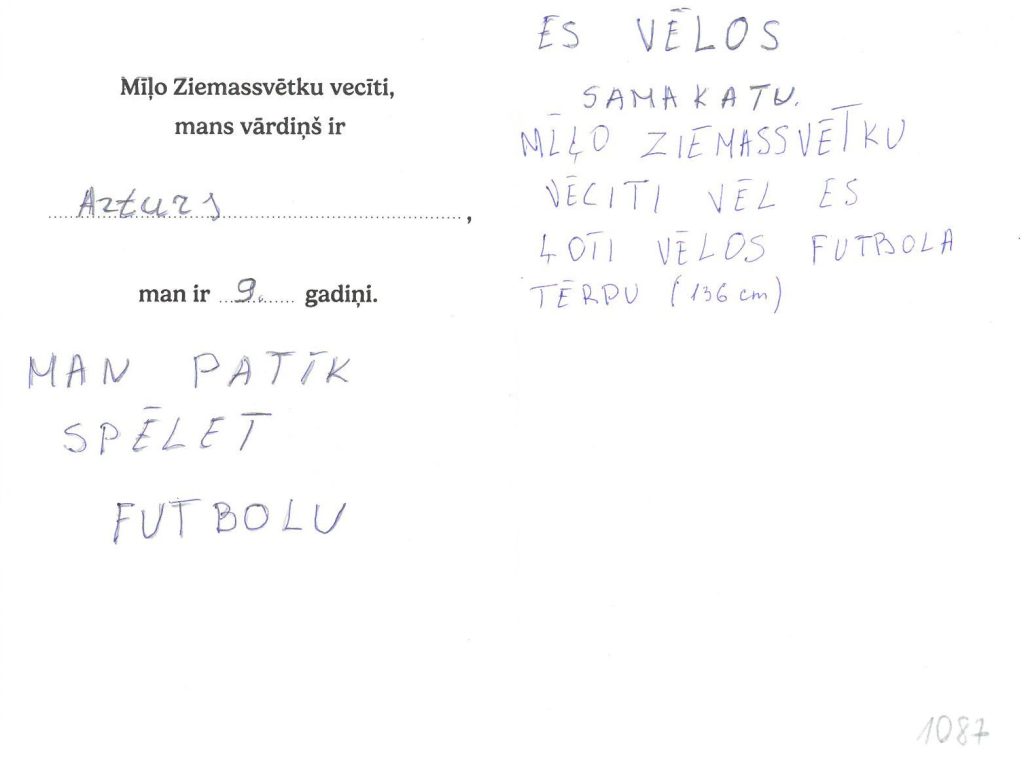 Mīļo Ziemassvētku vecīti,
mans vārdiņš ir
Arturs,
man ir 9. gadiņi.
MAN PATĪK
SPĒLET
FUTBOLU
ES VĒLOS
SAMAKATU.
MĪĻO ZIEMASSVĒTKU
VĒCITI VĒL ES
ĻOTI VĒLOS FUTBOLA
TĒRPU (136 cm)
1087